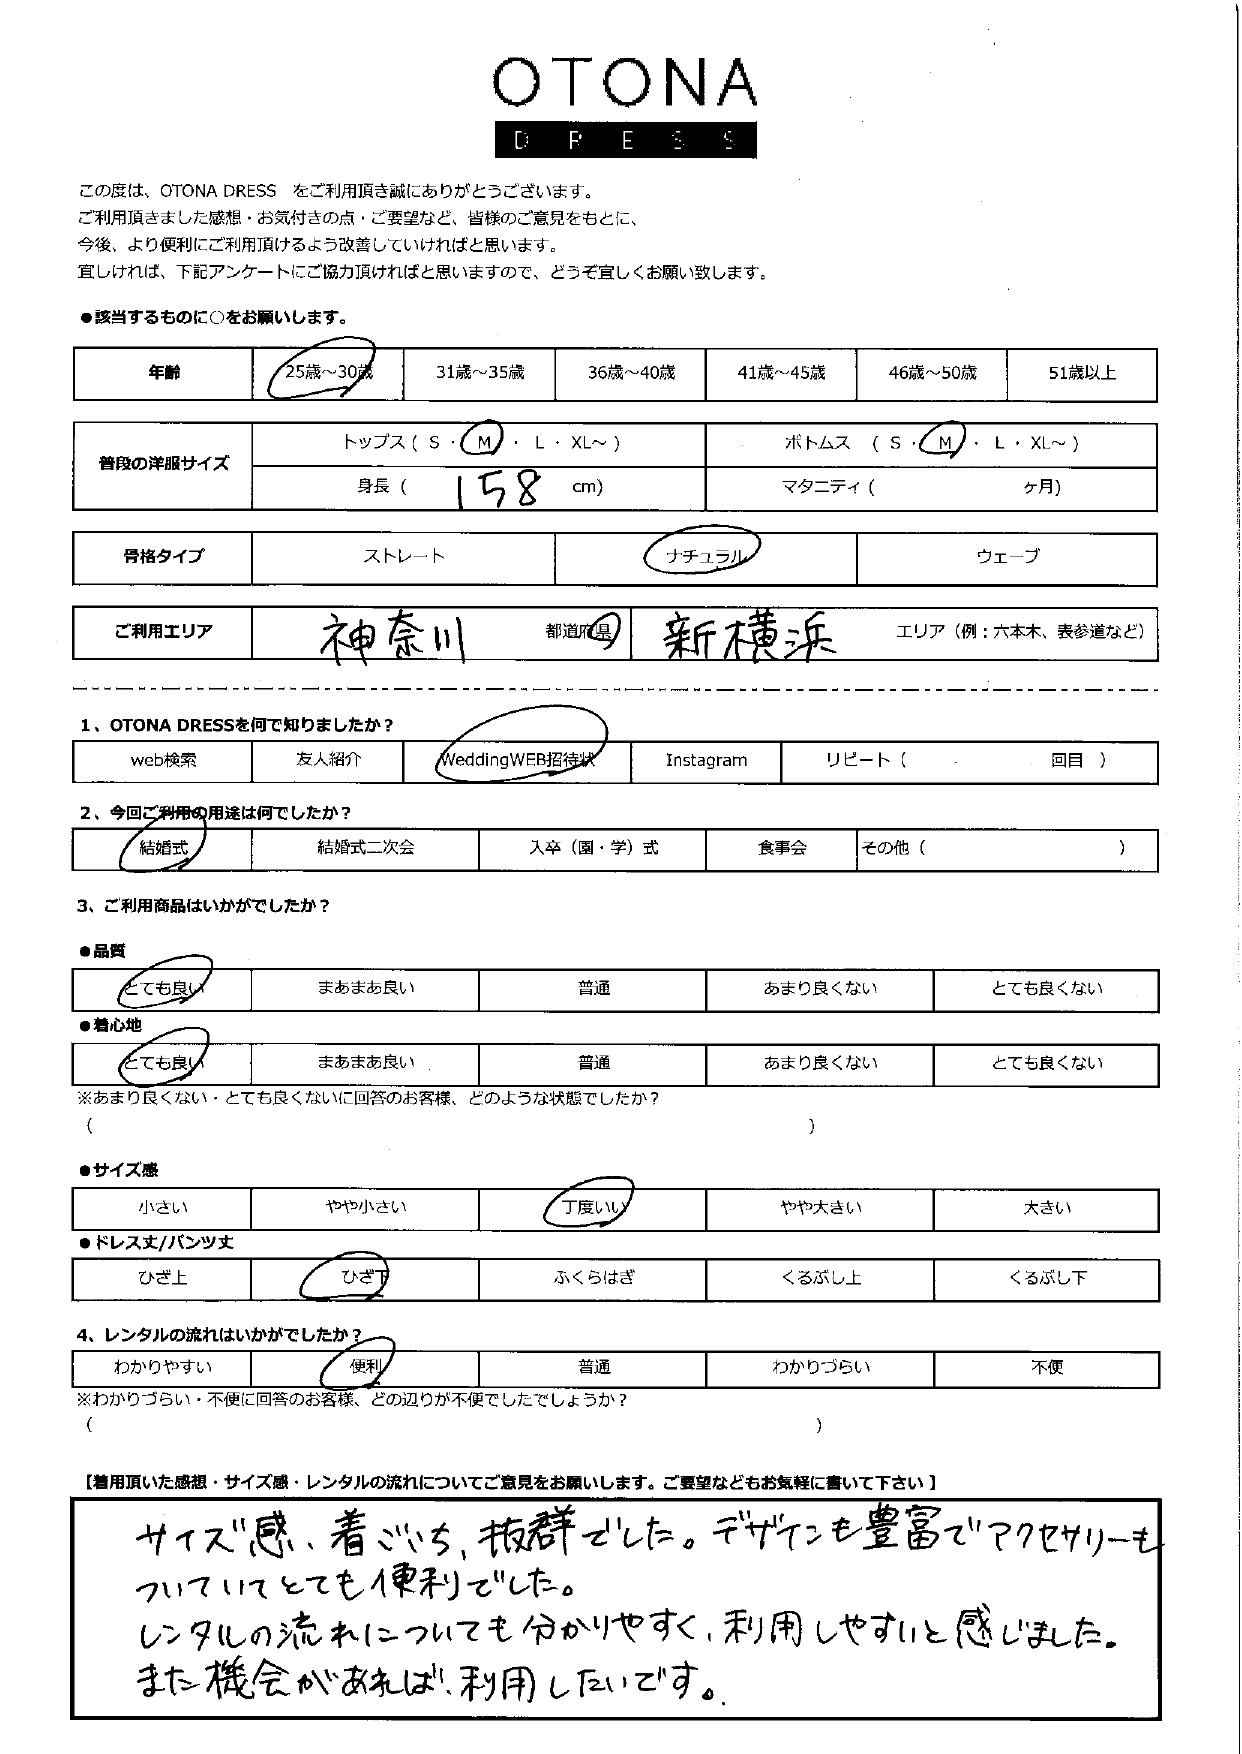 OTONA
DRESS
この度は、OTONA DRESS　をご利用頂き誠にありがとうございます。
ご利用頂きました感想・お気付きの点・ご要望など、皆様のご意見をもとに、
今後、より便利にご利用頂けるよう改善していければと思います。
宜しければ、下記アンケートにご協力頂ければと思いますので、どうぞ宜しくお願い致します。
●該当するものに○をお願いします。
年齢 25歳～30歳 31歳～35歳 36歳～40歳 41歳～45歳 46歳～50歳 51歳以上
普段の洋服サイズ トップス ( S ・ M ・ L ・ XL～ ) ボトムス ( S ・ M ・ L ・ XL～ )
身長 ( 158 cm) マタニティ ( ヶ月)
骨格タイプ ストレート ナチュラル ウェーブ
ご利用エリア 神奈川 都道府県 新横浜 エリア（例：六本木、表参道など）
1、OTONA DRESSを何で知りましたか？
web検索 友人紹介 WeddingWEB招待状 Instagram リピート（ 回目 ）
2、今回ご利用の用途は何でしたか？
結婚式 結婚式二次会 入卒（園・学）式 食事会 その他（ ）
3、ご利用商品はいかがでしたか？
●品質
とても良い まあまあ良い 普通 あまり良くない とても良くない
●着心地
とても良い まあまあ良い 普通 あまり良くない とても良くない
※あまり良くない・とても良くないに回答のお客様、どのような状態でしたか？
（ ）
●サイズ感
小さい やや小さい 丁度いい やや大きい 大きい
●ドレス丈/パンツ丈
ひざ上 ひざ下 ふくらはぎ くるぶし上 くるぶし下
4、レンタルの流れはいかがでしたか？
わかりやすい 便利 普通 わかりづらい 不便
※わかりづらい・不便に回答のお客様、どの辺りが不便でしたでしょうか？
（ ）
【着用頂いた感想・サイズ感・レンタルの流れについてご意見をお願いします。ご要望などもお気軽に書いて下さい】
サイズ感、着ごいち、抜群でした。デザインも豊富でアクセサリーも
ついていてとても便利でした。
レンタルの流れについても分かりやすく、利用しやすいと感じました。
また機会があれば、利用したいです。